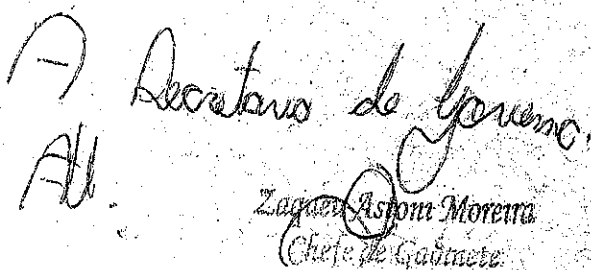 A Secretaria de Governo.
Att.
Zaqueu Astoni Moreira
Chefe de Gabinete